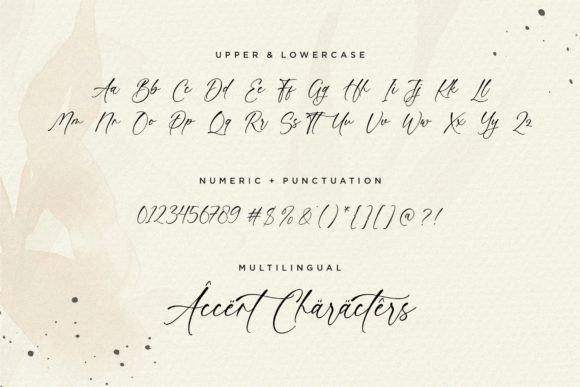 UPPER & LOWERCASE
Aa Bb Cc Dd Ee Ff Gg Hh Ii Jj Kk Ll
Mm Nn Oo Pp Qq Rr Ss Tt Uu Vv Ww Xx Yy Zz
NUMERIC + PUNCTUATION
0123456789 #$%&'()*{}[]@?!
MULTILINGUAL
Âccënt Chäräctêrs